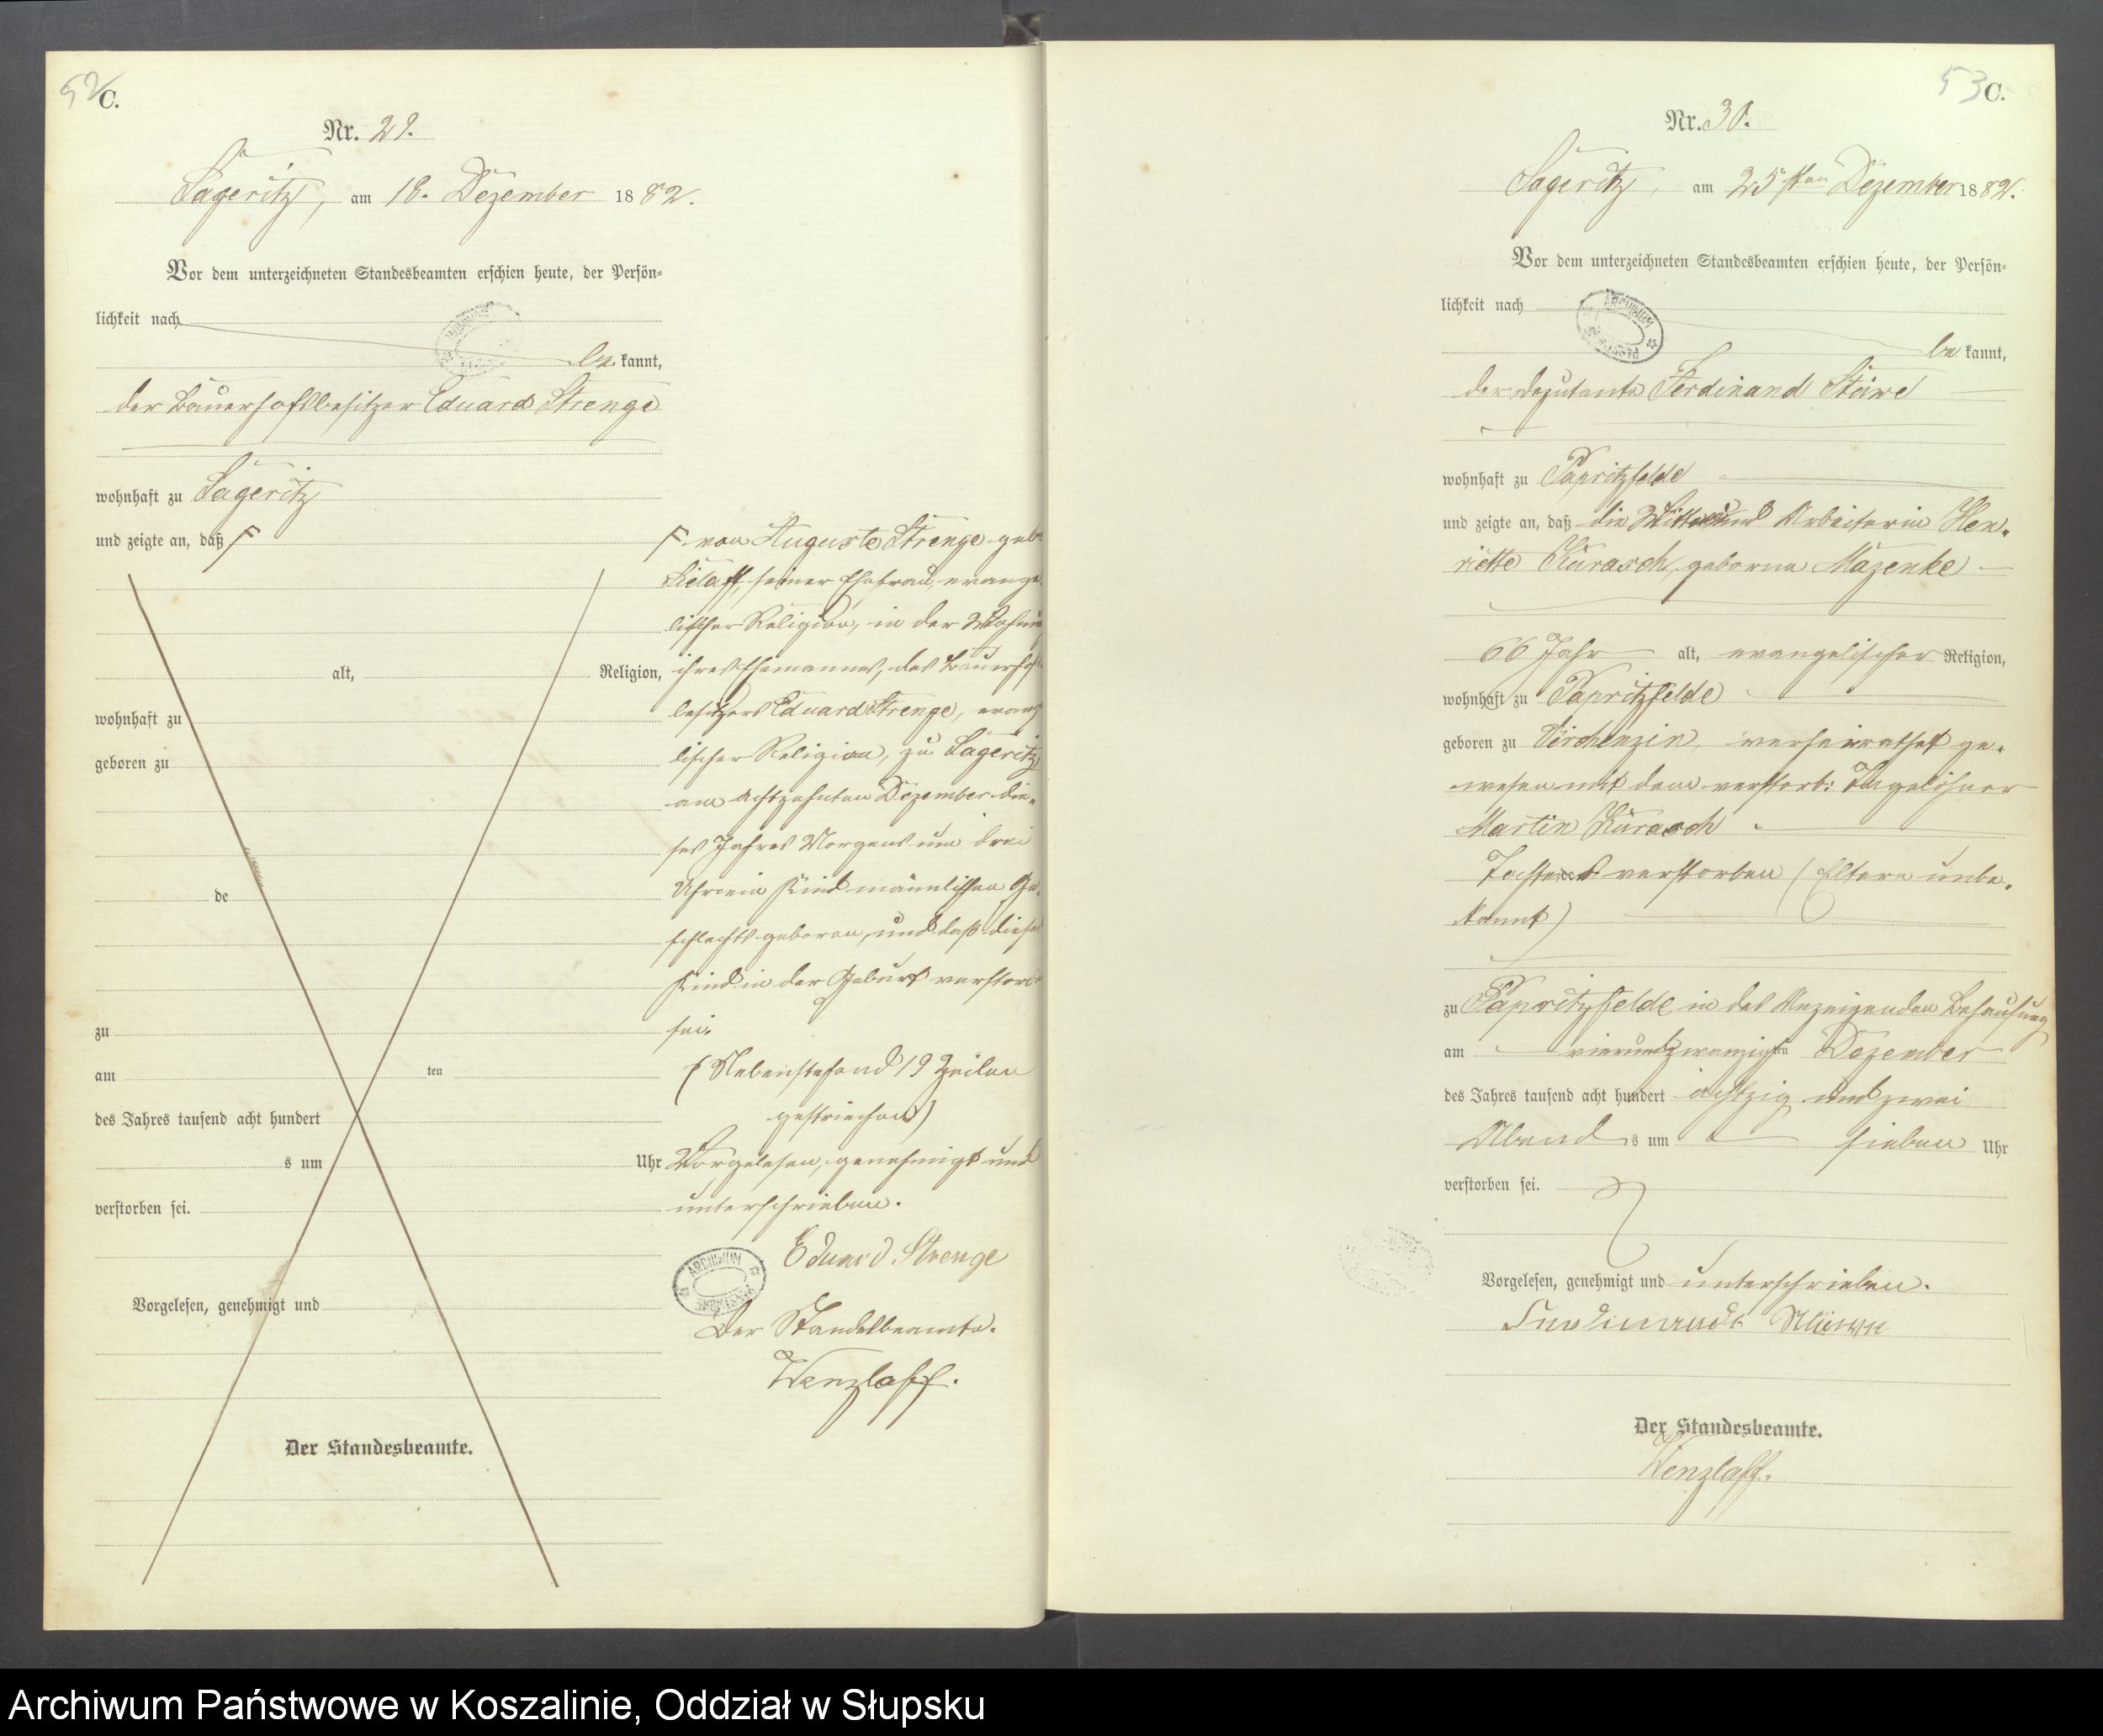 52
C.
Nr. 29.
Lageritz, am 18. Dezember 1882.
Vor dem unterzeichneten Standesbeamten erschien heute, der Persön-
lichkeit nach
be kannt,
der Bauerhofsbesitzer Eduard Strenge
wohnhaft zu Lageritz
und zeigte an, daß
alt, Religion,
wohnhaft zu
geboren zu
de
zu
am ten
des Jahres tausend acht hundert
s um Uhr
verstorben sei.
Vorgelesen, genehmigt und
Der Standesbeamte.
von Auguste Strenge
seiner Ehefrau, evange
lischer Religion, in der
ihres Ehemannes, des Bauerhofs
besitzers Eduard Strenge, evang
lischer Religion, zu Lageritz
am achtzehnten Dezember die-
ses Jahres Morgens um drei
Uhr ein Kind männlichen Ge-
schlechts geboren, und daß dieses
Kind in der Geburt verstorben
sei.
(Nebenstehend 19 Zeilen
gestrichen)
Vorgelesen, genehmigt und
unterschrieben.
Eduard Strenge
ARCHIWUM
Der Standesbeamte.
Wenzlaff.
53
C.
Nr. 30.
Lageritz, am 25sten Dezember 1882.
Vor dem unterzeichneten Standesbeamten erschien heute, der Persön-
lichkeit nach
ARCHIWUM
be kannt,
der Deputante Ferdinand Stüwe
wohnhaft zu Papritzfelde
und zeigte an, daß die Wittwe und Arbeiterin Hen-
riette Kurasch, geborne Mazenke
66 Jahr alt, evangelischer Religion,
wohnhaft zu Papritzfelde
geboren zu Virchenzin, verheirathet ge-
wesen mit dem verstorb: Tagelöhner
Martin Kurasch
Tochter verstorben (Eltern unbe-
kannt)
zu Papritzfelde in des Anzeigenden Behausung
am vierundzwanzigsten Dezember
des Jahres tausend acht hundert achtzig und zwei
Abend s um sieben Uhr
verstorben sei.
Vorgelesen, genehmigt und unterschrieben.
Ferdinandt Stüwe
Der Standesbeamte.
Wenzlaff.
Archiwum Państwowe w Koszalinie, Oddział w Słupsku